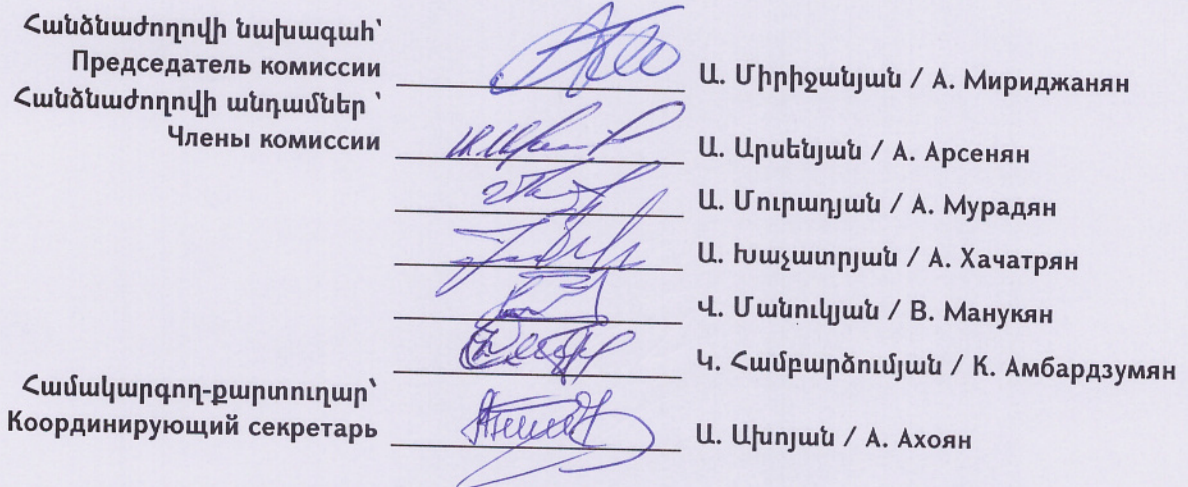 Հանձնաժողովի նախագահ՝
Председатель комиссии
Ա. Միրիջանյան / А. Мириджанян
Հանձնաժողովի անդամներ ՝
Члены комиссии
Ա. Արսենյան / А. Арсенян
Ա. Մուրադյան / А. Мурадян
Ա. Խաչատրյան / А. Хачатрян
Վ. Մանուկյան / В. Манукян
Կ. Համբարձումյան / К. Амбардзумян
Համակարգող-քարտուղար՝
Координирующий секретарь
Ա. Ախոյան / А. Ахоян